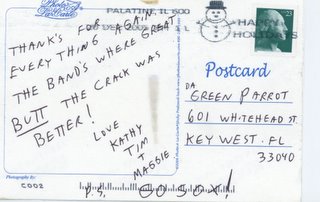 PALATINE, IL 600
HAPPY
HOLIDAYS
23
THANK'S FOR AGAIN
EVERYTHING GREAT
THE BAND'S WHERE
BUTT THE CRACK WAS
BETTER!
LOVE
KATHY
TIM
+
MAGGIE
P.S. GO SOX!
Postcard
DA
GREEN PARROT
601 WHITEHEAD ST.
KEY WEST, FL
33040
Photography By:
C002